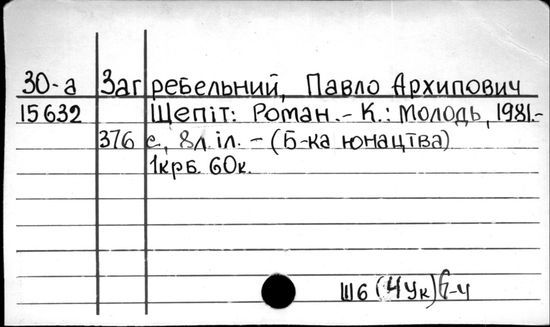 30-а Загребельний, Павло Архипович
15632 Щепіт: Роман. - К.: Молодь, 1981.-
376 с., 8л. іл. - (Б-ка юнацтва)
1крб. 60к.
Ш6(4Ук)6-4